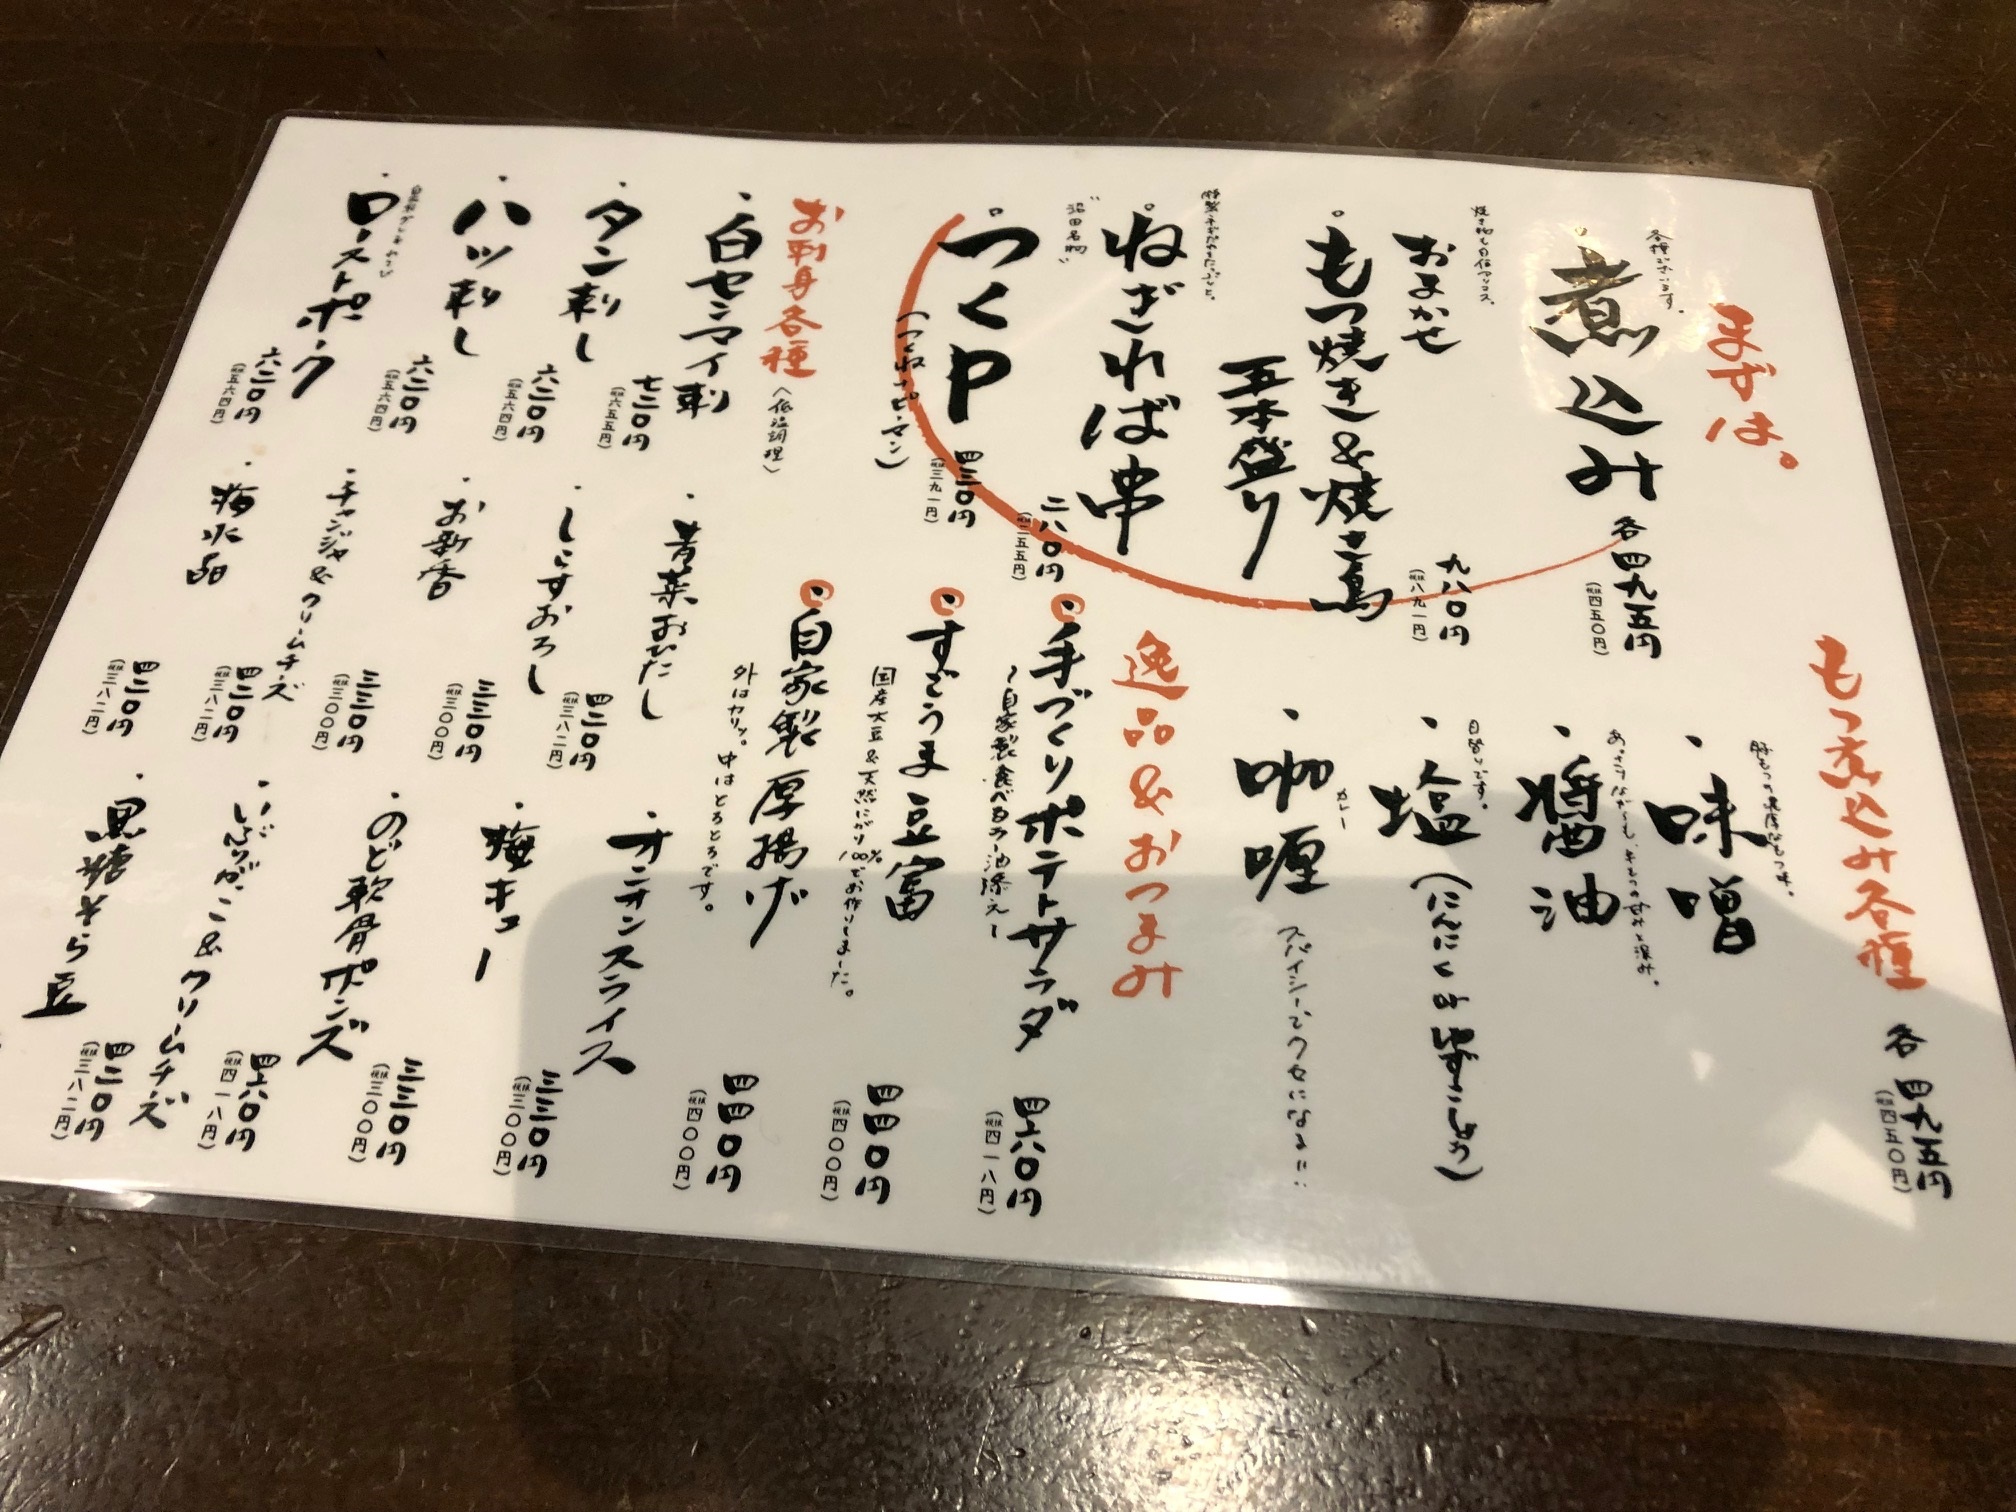 まずは。
各種ございます。
煮込み
各四九五円
(税抜四五〇円)
おまかせ
もつ焼き&焼き鳥
五本盛り
九八〇円
(税抜八九一円)
ねぎればば串
二八〇円
(税抜二五五円)
"沼田名物"
つくP
(つくねナピーマン)
四三〇円
(税抜三九一円)
お刺身各種
〈低温調理〉
白センマイ刺
七二〇円
(税抜六五五円)
タン刺し
六二〇円
(税抜五六四円)
ハツ刺し
六二〇円
(税抜五六四円)
ローストポーク
六二〇円
(税抜五六四円)
もつ煮込み各種
各四九五円
(税抜四五〇円)
味噌
醤油
塩(にんにくorゆずこしょう)
目旨りです。
咖喱
カレー
スパイシーでクセになる!!
逸品&おつまみ
手づくりポテトサラダ
〜自家製食べるラー油添え〜
四六〇円
(税抜四一八円)
すごうま豆富
国産大豆&天然にがり100%でお作りしました。
四四〇円
(税抜四〇〇円)
自家製厚揚げ
外はカリッ。中はとろとろです。
四四〇円
(税抜四〇〇円)
青菜おひたし
四二〇円
(税抜三八二円)
しらすおろし
三三〇円
(税抜三〇〇円)
お新香
三三〇円
(税抜三〇〇円)
チャンジャ&クリームチーズ
四二〇円
(税抜三八二円)
梅水晶
四二〇円
(税抜三八二円)
オニオンスライス
三三〇円
(税抜三〇〇円)
梅キュー
三三〇円
(税抜三〇〇円)
のど軟骨ポンズ
四六〇円
(税抜四一八円)
いぶりがっこ&クリームチーズ
四二〇円
(税抜三八二円)
黒糖そら豆